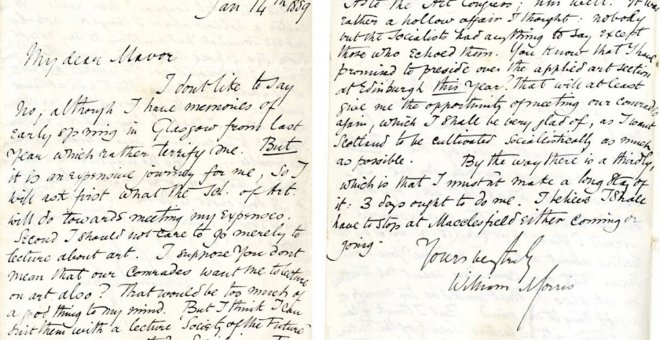 Jan 14th 1889
My dear Mavor
I dont like to say
No; although I have memories of
early spring in Glasgow from last
Year which rather terrify me. But
it is an expensive journey for me, so I
will ask first what the Soc. of Art
will do towards meeting my expences.
Second I should not care to go merely to
lecture about art. I suppose You dont
mean that our comrades want me to lecture
on art also? That would be too much of
a good thing to my mind. But I think I can
suit them with a lecture Society of the Future
As to the Art Congress; hm well! It was
rather a hollow affair I thought: nobody
but the Socialists had anything to say except
those who echoed them. You know that I have
promised to preside over the applied art section
at Edinburgh this Year? that will at least
give me the opportunity of meeting our comrades
again, which I shall be very glad of, as I want
Scotland to be cultivated Socialistically as much
as possible. By the way there is a thirdly,
which is that I must n't make a long stay of
it. 3 days ought to do me. I believe I shall
have to stop at Macclesfield either coming or
going.
Yours very truly
William Morris